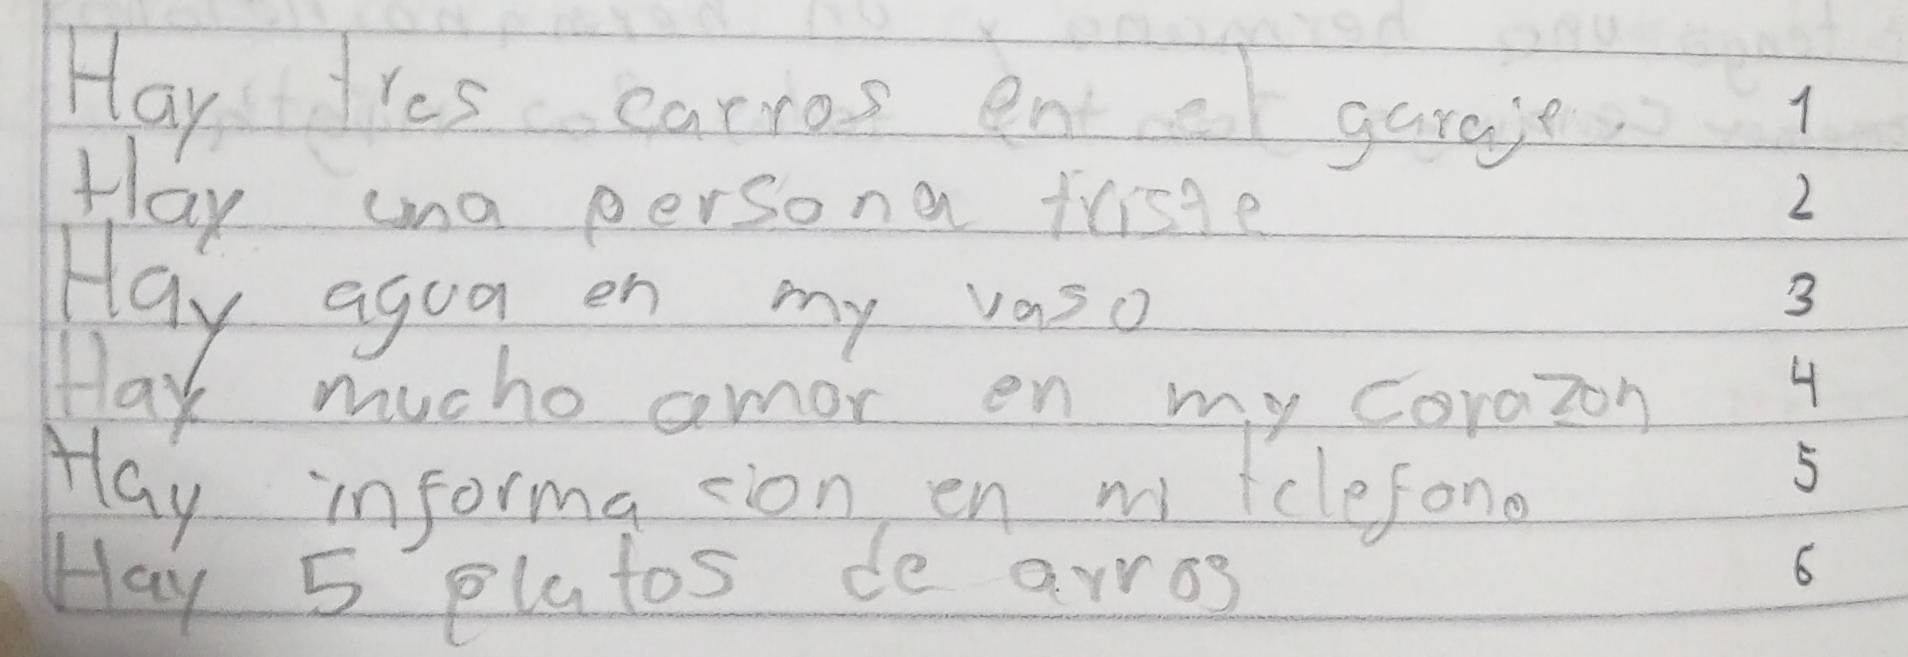 Hay tres carros en el garaje. 1
Hay una persona triste 2
Hay agua en my vaso 3
Hay mucho amor en my corazon 4
Hay informa cion en mi telefono 5
Hay 5 platos de arros 6